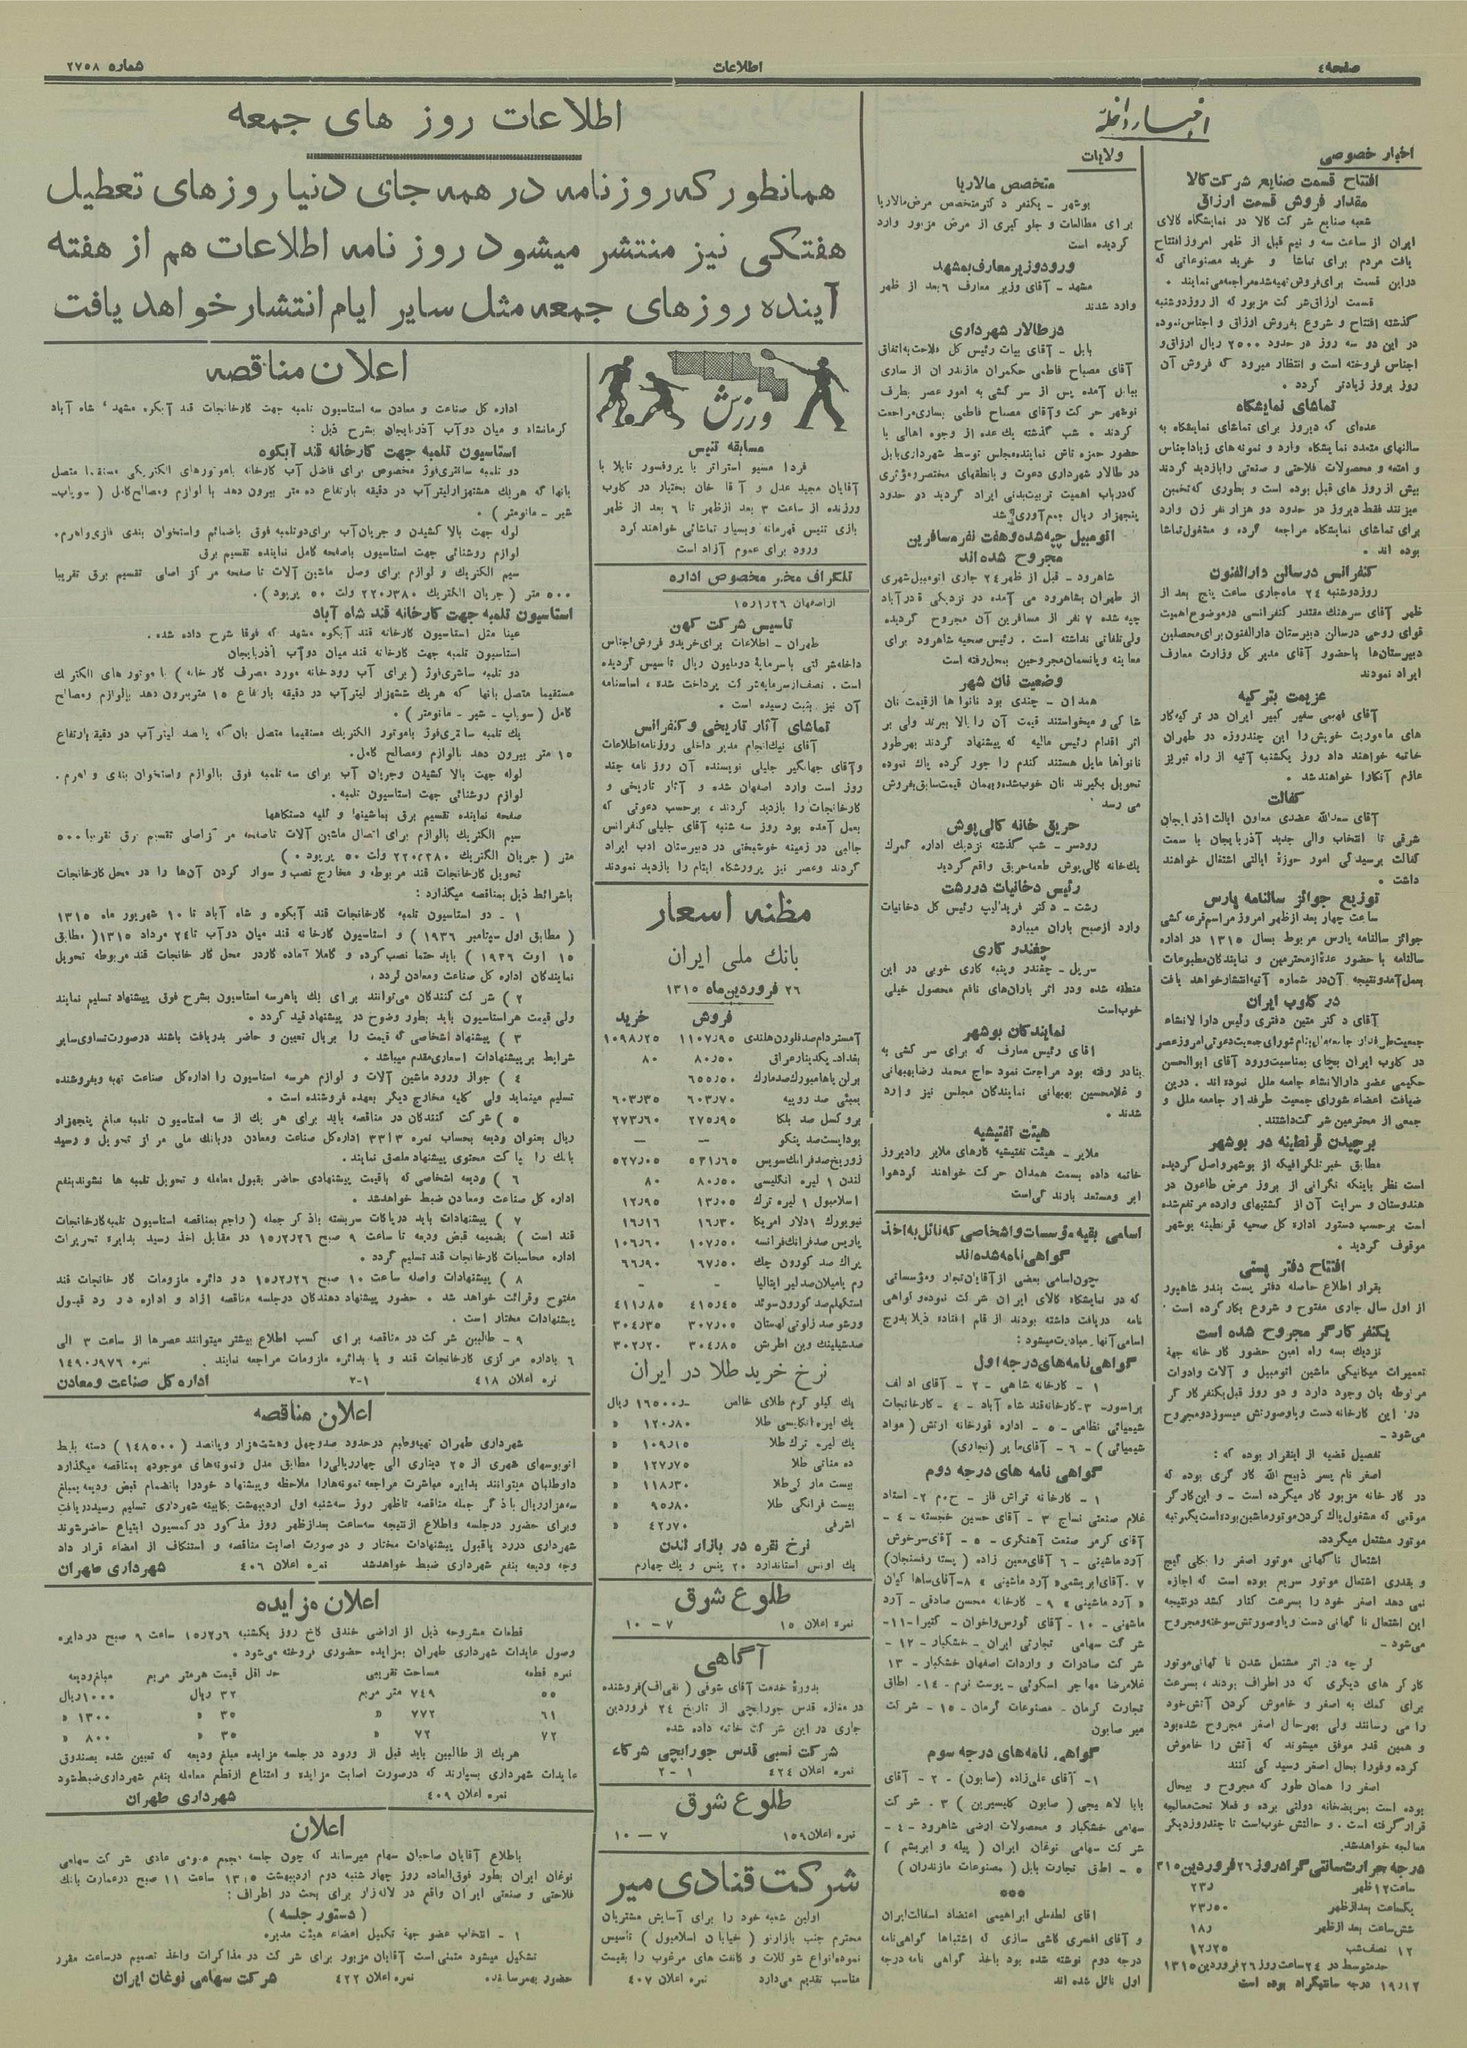 صفحه ٤
اطلاعات
شماره ٢٧٥٨
اخبار داخله
اخبار خصوصی
افتتاح قسمت صنایع شرکت کالا
مقدار فروش قسمت ارزاق
شعبه صنایع شرکت کالا در نمایشگاه کالای
ایران از ساعت سه و نیم قبل از ظهر امروز افتتاح
یافت مردم برای تماشا و خرید مصنوعاتی که
دراین قسمت برای فروش تهیه شده مراجعه می نمایند .
قسمت ارزاق شرکت مزبور که از روز دوشنبه
گذشته افتتاح و شروع بفروش ارزاق و اجناس نموده
در این دو سه روز در حدود ٢٥٠٠ ریال ارزاق و
اجناس فروخته است و انتظار میرود که فروش آن
روز بروز زیادتر گردد .
تماشای نمایشگاه
عده‌ای که دیروز برای تماشای نمایشگاه به
سالنهای متعدد نمایشگاه وارد و نمونه های زیاد اجناس
و امتعه و محصولات فلاحتی و صنعتی را بازدید کردند
بیش از روز های قبل بوده است و بطوری که تخمین
میزنند فقط دیروز در حدود دو هزار نفر زن وارد
برای تماشای نمایشگاه مراجعه کرده و مشغول تماشا
بوده اند .
کنفرانس در سالن دارالفنون
روز دوشنبه ٢٤ ماه جاری ساعت پنج بعد از
ظهر آقای سرهنگ مقتدر کنفرانسی در موضوع اهمیت
قوای روحی در سالن دبیرستان دارالفنون برای محصلین
دبیرستان‌ها با حضور آقای مدیر کل وزارت معارف
ایراد نمودند
عزیمت بترکیه
آقای فهمی سفیر کبیر ایران در ترکیه کار
های ماموریت خویش را این چند روزه در طهران
خاتمه خواهند داد روز یکشنبه آتیه از راه تبریز
عازم آنکارا خواهند شد .
کفالت
آقای سعدالله عضدی معاون ایالت آذرایجان
شرقی تا انتخاب والی جدید آذربایجان با سمت
کفالت برسیدگی امور حوزهٔ ایالتی اشتغال خواهند
داشت .
توزیع جوائز سالنامه پارس
ساعت چهار بعد از ظهر امروز مراسم قرعه کشی
جوائز سالنامه پارس مربوط بسال ١٣١٥ در اداره
سالنامه با حضور عده‌از محترمین و نمایندگان مطبوعات
بعمل آمد و نتیجه آن در شماره آتیه انتشار خواهد یافت
در کلوب ایران
آقای دکتر متین دفتری رئیس دارالانشاء
در کلوب ایران بچای بمناسبت ورود آقای ابوالحسن
حکیمی عضو دارالانشاء جامعه ملل نموده اند . درین
ضیافت اعضاء شورای جمعیت طرفدار جامعه ملل و
جمعی از محترمین شرکت داشتند .
برچیدن قرنطینه در بوشهر
مطابق خبر تلگرافیکه از بوشهر واصل گردیده
است نظر باینکه نگرانی از بروز مرض طاعون در
هندوستان و سرایت آن از کشتیهای وارده مرتفع شده
است برحسب دستور اداره کل صحیه قرنطینه بوشهر
موقوف گردید .
افتتاح دفتر پستی
بقرار اطلاع حاصله دفتر پست بندر شاهپور
از اول سال جاری مفتوح و شروع بکار کرده است .
یکنفر کارگر مجروح شده است
نزدیک بسه راه امین حضور کارخانه جهة
تعمیرات میکانیکی ماشین اتومبیل و آلات وادوات
مربوطه بان وجود دارد و دو روز قبل یکنفر کارگر
در این کارخانه دست و پا وصورتش میسوزد و مجروح
می‌شود -
تفصیل قضیه از اینقرار بوده که :
اصغر نام پسر ذبیح الله کارگری بوده که
در کارخانه مزبور کار میکرده است - و این کارگر
موقعی که مشغول پاک کردن موتور ماشین بوده است یکمرتبه
موتور مشتعل میگردد.
اشتعال ناگهانی موتور اصغر را بکلی گیج
و بقدری اشتعال موتور سریع بوده است که اجازه
نمی دهد اصغر خود را بسرعت کنار کشد در نتیجه
این اشتعال ناگهانی دست و پا وصورتش سوخته و مجروح
می‌شود -
گرچه در اثر مشتعل شدن ناگهانی موتور
کارگر های دیگری که در اطراف بودند ، بسرعت
برای کمک به اصغر و خاموش کردن آتش خود
را می رسانند ولی بهرحال اصغر مجروح شده بود
و همین قدر موفق میشوند که آتش را خاموش
کرده و فورا بحال اصغر رسیدگی کنند
اصغر را همان طور که مجروح و بیحال
بوده است بمریضخانه دولتی برده و فعلا تحت معالجه
قرار گرفته است . و حالش خوب است تا چند روز دیگر
معالجه خواهد شد.
درجه حرارت سانتی گراد روز ٢٦ فروردین ٣١٥
ساعت ١٢ ظهر ٢٣ر
یکساعت بعد از ظهر ٢٣ر٥٠
شش ساعت بعد از ظهر ١٨ر
١٢ نصف شب ١٢ر٢٥
حد متوسط در ٢٤ ساعت روز ٢٦ فروردین ١٣١٥
١٩ر١٢ درجه سانتیگراد بوده است
ولایات
متخصص مالاریا
بوشهر - یکنفر دکتر متخصص مرض مالاریا
برای مطالعات و جلوگیری از مرض مزبور وارد
گردیده است
ورود وزیر معارف بمشهد
مشهد - آقای وزیر معارف ٦ بعد از ظهر
وارد شدند
در طالار شهرداری
بابل - آقای بیات رئیس کل فلاحت به اتفاق
آقای مصباح فاطمی حکمران مازندران از ساری
ببابل آمده پس از سرکشی به امور عصر بطرف
نوشهر حرکت و آقای مصباح فاطمی بساری مراجعت
کردند . شب گذشته یک عده از وجوه اهالی با
حضور حمزه تاش نماینده مجلس توسط شهرداری بابل
در طالار شهرداری دعوت و با نطقهای مختصر و مؤثری
که در باب اهمیت تربیت بدنی ایراد گردید دو حدود
پنجهزار ریال جمع آوری شد
اتومبیل چپه شده و هفت نفر مسافرین
مجروح شده اند
شاهرود - قبل از ظهر ٢٤ جاری اتومبیل شهری
از طهران بشاهرود می آمده در نزدیکی قادرآباد
چپه شده ٧ نفر از مسافرین آن مجروح گردیده
ولی تلفاتی نداشته است . رئیس صحیه شاهرود برای
معاینه و پانسمان مجروحین بمحل رفته است
وضعیت نان شهر
همدان - چندی بود نانوا ها از قیمت نان
شاکی و میخواستند قیمت آن را بالا ببرند ولی بر
اثر اقدام رئیس مالیه که پیشنهاد کردند بهر طور
نانواها مایل هستند گندم را جور کرده پاک نموده
تحویل بگیرند نان خوب شده و بهمان قیمت سابق بفروش
می رسد
حریق خانه کالی پوش
رودسر - شب گذشته نزدیک اداره گمرک
یک خانه کالی پوش طعمه حریق واقع گردید
رئیس دخانیات در رشت
رشت - دکتر فریدلیپ رئیس کل دخانیات
وارد از صبح باران میبارد
چغندر کاری
سرپل - چغندر و پنبه کاری خوبی در این
منطقه شده و در اثر باران‌های نافع محصول خیلی
خوب است
نمایندگان بوشهر
اقای رئیس معارف که برای سر کشی به
بنادر رفته بود مراجعت نمود حاج محمد رضا بهبهانی
و غلامحسین بهبهانی نمایندگان مجلس نیز وارد
شدند .
هیئت تفتیشیه
ملایر - هیئت تفتیشیه کارهای ملایر را دیروز
خاتمه داده بسمت همدان حرکت خواهند کرد هوا
ابر و مستعد بارندگی است
اسامی بقیه مؤسسات و اشخاصی که نائل به اخذ
گواهی نامه شده اند
چون اسامی بعضی از آقایان تجار و مؤسساتی
که در نمایشگاه کالای ایران شرکت نموده و گواهی
نامه دریافت داشته بودند از قلم افتاده ذیلا بدرج
اسامی آنها مبادرت میشود :
گواهی نامه های درجه اول
١ - کارخانه شاهی - ٢ - آقای ادلف
براسور - ٣ - کارخانه قند شاه آباد - ٤ - کارخانجات
شیمیائی نظامی - ٥ - اداره قورخانه ارتش ( مواد
شیمیائی ) - ٦ - آقای مایر (نجاری)
گواهی نامه های درجه دوم
١ - کارخانه تراش فلز - ح‌وم ٢ - استاد
غلام صنعتی نساج ٣ - آقای حسین خجسته - ٤ -
آقای کرمز صنعت آهنگری - ٥ - آقای سرخوش
آرد ماشینی - ٦ آقای معین زاده ( پسته رفسنجان)
٧ . آقای ابریشمی « آرد ماشینی » ٨ - آقای ساها کیان
« آرد ماشینی » ٩ - کارخانه محسن صادقی - آرد
ماشینی - ١٠ - آقای گورس واخوان - کتیرا - ١١ -
شرکت سهامی تجارتی ایران - خشکبار - ١٢ -
شرکت صادرات و واردات اصفهان خشکبار - ١٣
غلامرضا مهاجر اسکوئی - پوست نرم - ١٤ - اطاق
تجارت کرمان - مصنوعات کرمان - ١٥ - شرکت
میر صابون
گواهی نامه های درجه سوم
١ - آقای علی زاده (صابون) - ٢ - آقای
بابا لاهیجی ( صابون کلیسیرین ) ٣ . شرکت
سهامی خشکبار و محصولات ارضی شاهرود - ٤ -
شرکت سهامی نوغان ایران ( پیله و ابریشم )
٥ - اطاق تجارت بابل ( مصنوعات مازندران )
***
اقای لطفعلی ابراهیمی اعتضاد اسفالت ایران
و آقای افسری کاشی سازی که اشتباها گواهی نامه
درجه دوم نوشته شده بود باخذ گواهی نامه درجه
اول نائل شده اند
اطلاعات روز های جمعه
همانطور که روزنامه در همه جای دنیا روزهای تعطیل
هفتگی نیز منتشر میشود روز نامه اطلاعات هم از هفته
آینده روزهای جمعه مثل سایر ایام انتشار خواهد یافت
ورزش
مسابقه تنیس
فردا مسیو استراتر با پروفسور تایلا با
آقایان مجید عدل و آقا خان بختیار در کلوب
ورزنده از ساعت ٣ بعد از ظهر تا ٦ بعد از ظهر
بازی تنیس قهرمانه و بسیار تماشائی خواهند کرد
ورود برای عموم آزاد است
تلگراف مخبر مخصوص اداره
از اصفهان ١٥ر١ر٢٦
تاسیس شرکت کهن
طهران - اطلاعات برای خرید و فروش اجناس
داخله شرکتی با سرمایه دو ملیون ریال تاسیس گردیده
است . نصف از سرمایه شرکت پرداخت شده ، اساسنامه
آن نیز بثبت رسیده است .
تماشای آثار تاریخی و کنفرانس
آقای نیک انجام مدیر داخلی روزنامه اطلاعات
و آقای جهانگیر جلیلی نویسنده آن روز نامه چند
روز است وارد اصفهان شده و آثار تاریخی و
کارخانجات را بازدید کردند ، برحسب دعوتی که
بعمل آمده بود روز سه شنبه آقای جلیلی کنفرانس
جالبی در زمینه خوشبختی در دبیرستان ادب ایراد
کردند و عصر نیز پرورشگاه ایتام را بازدید نمودند
مظنه اسعار
بانک ملی ایران
٢٦ فروردین ماه ١٣١٥
فروش خرید
آمستردام صد فلورن هلندی ١١٠٧ر٩٥ ١٠٩٨ر٢٥
بغداد یکدینار عراق ٨٠ر٥٠ ٨٠
برلن یا هامبورک صد مارک ٦٥٥ر٥٠
بمبئی صد روپیه ٦٠٣ر٧٠ ٦٠٣ر٣٥
بروکسل صد بلکا ٢٧٥ر٩٥ ٢٧٣ر٦٠
بوداپست صد پنکو - -
زوریخ صد فرانک سویس ٥٣١ر٦٥ ٥٢٧ر٠٥
لندن ١ لیره انگلیسی ٨٠ر٥٠ ٨٠
اسلامبول ١ لیره ترک ١٣ر٠٥ ١٢ر٩٥
نیویورک ١ دلار امریکا ١٦ر٣٠ ١٦ر١٦
پاریس صد فرانک فرانسه ١٠٧ر٥٠ ١٠٦ر٦٠
پراک صد کورون چک ٦٧ر٥٠ ٦٦ر٩٠
رم یا میلان صد لیر ایتالیا - -
استکهلم صد کورون سوئد ٤١٥ر٤٥ ٤١١ر٨٥
ورشو صد زلوتی لهستان ٣٠٧ر٠٠ ٣٠٤ر٣٥
صد شیلینک وین اطریش ٣٠٤ر٨٥ ٣٠٢ر٢٠
نرخ خرید طلا در ایران
یک کیلو گرم طلای خالص ١٦٥٠٠ر- ریال
یک لیره انگلیسی طلا ١٢٠ر٨٠ «
یک لیره ترک طلا ١٠٩ر١٥ «
ده مناتی طلا ١٢٧ر٧٥ «
بیست مارکی طلا ١١٨ر٣٠ «
بیست فرانگی طلا ٩٥ر٨٠ «
اشرفی ٤٢ر٧٠ «
نرخ نقره در بازار لندن
یک اونس استاندارد ٢٠ پنس و یک چهارم
طلوع شرق
نمره اعلان ١٥ ٧ - ١٠
آگاهی
بدورهٔ خدمت آقای شوفی ( نفی‌اف) فروشنده
در مغازه قدس جورابچی از تاریخ ٢٤ فروردین
جاری در این شرکت خاتمه داده شده
شرکت نسبی قدس جورابچی شرکاء
نمره اعلان ٤٢٤ ١ - ٢
طلوع شرق
نمره اعلان ١٥٩ ٧ - ١٠
شرکت قنادی میر
اولین شعبه خود را برای آسایش مشتریان
محترم جنب بازار نو ( خیابان اسلامبول ) تأسیس
نموده انواع شوکلات و کافت های مرغوب را بقیمت
مناسب تقدیم می دارد نمره اعلان ٤٠٧
اعلان مناقصه
اداره کل صناعت و معادن سه استاسیون تلمبه جهت کارخانجات قند آبکوه مشهد ، شاه آباد
کرمانشاه و میان دوآب آذربایجان بشرح ذیل :
استاسیون تلمبه جهت کارخانه قند آبکوه
دو تلمبه سانتریفوژ مخصوص برای فاضل آب کارخانه با موتورهای الکتریکی مستقیما متصل
بانها که هر یک هشتهزار لیتر آب در دقیقه بارتفاع ده متر بیرون دهد با لوازم و مصالح کامل ( سوپاپ-
شیر - مانومتر ) .
لوله جهت بالا کشیدن و جریان آب برای دو تلمبه فوق با ضمائم و استخوان بندی فلزی و اهرم.
لوازم روشنائی جهت استاسیون با صفحه کامل نماینده تقسیم برق
سیم الکتریک و لوازم برای وصل ماشین آلات تا صفحه مرکز اصلی تقسیم برق تقریبا
٥٠٠ متر ( جریان الکتریک ٢٢٠ر٣٨٠ ولت ٥٠ پریود ).
استاسیون تلمبه جهت کارخانه قند شاه آباد
عینا مثل استاسیون کارخانه قند آبکوه مشهد که فوقا شرح داده شده.
استاسیون تلمبه جهت کارخانه قند میان دوآب آذربایجان
دو تلمبه سانتریفوژ ( برای آب رودخانه مورد مصرف کارخانه ) با موتور های الکتریک
مستقیما متصل بانها که هر یک ششهزار لیتر آب در دقیقه بارتفاع ١٥ متر بیرون دهد با لوازم و مصالح
کامل ( سوپاپ - شیر - مانومتر ) .
یک تلمبه سانتریفوژ با موتور الکتریک مستقیما متصل بان که پانصد لیتر آب در دقیقه بارتفاع
١٥ متر بیرون دهد با لوازم و مصالح کامل.
لوله جهت بالا کشیدن و جریان آب برای سه تلمبه فوق با لوازم و استخوان بندی و اهرم.
لوازم روشنائی جهت استاسیون تلمبه .
صفحه نماینده تقسیم برق بماشینها و کلیه دستگاهها
سیم الکتریک با لوازم برای اتصال ماشین آلات تا صفحه مرکز اصلی تقسیم برق تقریبا ٥٠٠
متر ( جریان الکتریک ٢٢٠ر٣٨٠ ولت ٥٠ پریود )
تحویل کارخانجات قند مربوطه و مخارج نصب و سوار کردن آن‌ها را در محل کارخانجات
باشرائط ذیل بمناقصه میگذارد :
١ - دو استاسیون تلمبه کارخانجات قند آبکوه و شاه آباد تا ١٠ شهریور ماه ١٣١٥
( مطابق اول سپتامبر ١٩٣٦ ) و استاسیون کارخانه قند میان دوآب تا ٢٤ مرداد ١٣١٥ ( مطابق
١٥ اوت ١٩٣٦ ) باید حتما نصب کرده و کاملا آماده کار در محل کارخانجات قند مربوطه تحویل
نمایندگان اداره کل صناعت و معادن گردد .
٢ ) شرکت کنندگان می‌توانند برای یک یا هر سه استاسیون بشرح فوق پیشنهاد تسلیم نمایند
ولی قیمت هر استاسیون باید بطور وضوح در پیشنهاد قید گردد .
٣ ) پیشنهاد اشخاصی که قیمت را بریال تعیین و حاضر بدریافت باشند در صورت تساوی سایر
شرایط بر پیشنهادات اسعاری مقدم میباشد .
٤ ) جواز ورود ماشین آلات و لوازم هر سه استاسیون را اداره کل صناعت تهیه و بفروشنده
تسلیم مینماید ولی کلیه مخارج دیگر بعهده فروشنده است .
٥ ) شرکت کنندگان در مناقصه باید برای هر یک از سه استاسیون تلمبه مبلغ پنجهزار
ریال بعنوان ودیعه بحساب نمره ٣٣١٣ اداره کل صناعت و معادن در بانک ملی مرکز تحویل و رسید
بانک را پاکت محتوی پیشنهاد ملصق نمایند .
٦ ) ودیعه اشخاصی که باقیمت پیشنهادی حاضر بقبول معامله و تحویل تلمبه ها نشوند بنفع
اداره کل صناعت و معادن ضبط خواهد شد.
٧ ) پیشنهادات باید در پاکات سربسته با ذکر جمله ( راجع بمناقصه استاسیون تلمبه کارخانجات
قند است ) بضمیمه قبض ودیعه تا ساعت ٩ صبح ١٥ر٢ر٢٦ در مقابل اخذ رسید بدایره تحریرات
اداره محاسبات کارخانجات قند تسلیم گردد .
٨ ) پیشنهادات واصله ساعت ١٠ صبح ١٥ر٢ر٢٦ در دائره ملزومات کارخانجات قند
مفتوح و قرائت خواهد شد . حضور پیشنهاد دهندگان در جلسه مناقصه آزاد و اداره در رد قبول
پیشنهادات مختار است .
٩ - طالبین شرکت در مناقصه برای کسب اطلاع بیشتر میتوانند عصرها از ساعت ٣ الی
٦ باداره مرکزی کارخانجات قند و یا بدائره ملزومات مراجعه نمایند . نمره ١٤٩٠ر٩٧٦
نمره اعلان ٤١٨ ١-٢ اداره کل صناعت و معادن
اعلان مناقصه
شهرداری طهران تهیه و طبع در حدود صد و چهل و هشت هزار و پانصد ( ١٤٨٥٠٠ ) دسته بلیط
اتوبوسهای شهری از ٢٥ دیناری الی چهار ریالی را مطابق مدل و نمونه‌های موجوده بمناقصه میگذارد
داوطلبان میتوانند بدایره مباشرت مراجعه نمونه‌ها را ملاحظه و پیشنهاد خود را بانضمام قبض ودیعه بمبلغ
سه هزار ریال با ذکر جمله مناقصه تا ظهر روز سه شنبه اول اردیبهشت بکابینه شهرداری تسلیم رسید دریافت
و برای حضور در جلسه و اطلاع از نتیجه سه ساعت بعد از ظهر روز مذکور در کمسیون ابتیاع حاضر شوند
شهرداری در رد یا قبول پیشنهادات مختار و در صورت اصابت مناقصه و استنکاف از امضاء قرار داد
وجه ودیعه بنفع شهرداری ضبط خواهد شد نمره اعلان ٤٠٦ شهرداری طهران
اعلان مزایده
قطعات مشروحه ذیل از اراضی خندق کاخ روز یکشنبه ١٥ر٢ر٦ ساعت ٩ صبح در دایره
وصول عایدات شهرداری طهران بمزایده حضوری فروخته می‌شود .
نمره قطعه مساحت تقریبی حد اقل قیمت هر متر مربع مبلغ ودیعه
٥٥ ٧٤٩ متر مربع ٣٢ ریال ١٠٠٠ ریال
٦١ ٧٧٢ « ٣٥ « ١٣٠٠ «
٧٢ ٧٢ « ٣٥ « ٨٠٠ «
هر یک از طالبین باید قبل از ورود در جلسه مزایده مبلغ ودیعه که تعیین شده بصندوق
عایدات شهرداری بسپارند که در صورت اصابت مزایده و امتناع از قطع معامله بنفع شهرداری ضبط شود
نمره اعلان ٤٠٩ شهرداری طهران
اعلان
باطلاع آقایان صاحبان سهام میرساند که چون جلسه مجمع عمومی عادی شرکت سهامی
نوغان ایران بطور فوق العاده روز چهار شنبه دوم اردیبهشت ١٣١٥ ساعت ١١ صبح در عمارت بانک
فلاحتی و صنعتی ایران واقع در لاله زار برای بحث در اطراف :
( دستور جلسه )
١ - انتخاب عضو جهة تکمیل اعضاء هیئت مدیره
تشکیل میشود متمنی است آقایان مزبور برای شرکت در مذاکرات و اخذ تصمیم در ساعت مقرر
حضور بهمرسانند. نمره اعلان ٤٢٢ شرکت سهامی نوغان ایران